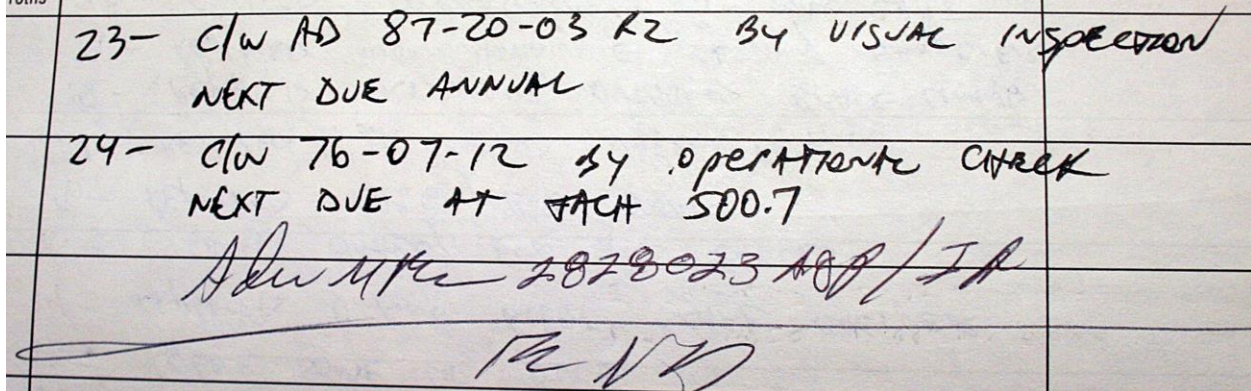 23- C/W AD 87-20-03 R2 BY VISUAL INSPECTION
NEXT DUE ANNUAL
24- C/W 76-07-12 BY OPERATIONAL CHECK
NEXT DUE AT TACH 500.7
2828023 A&P/IA